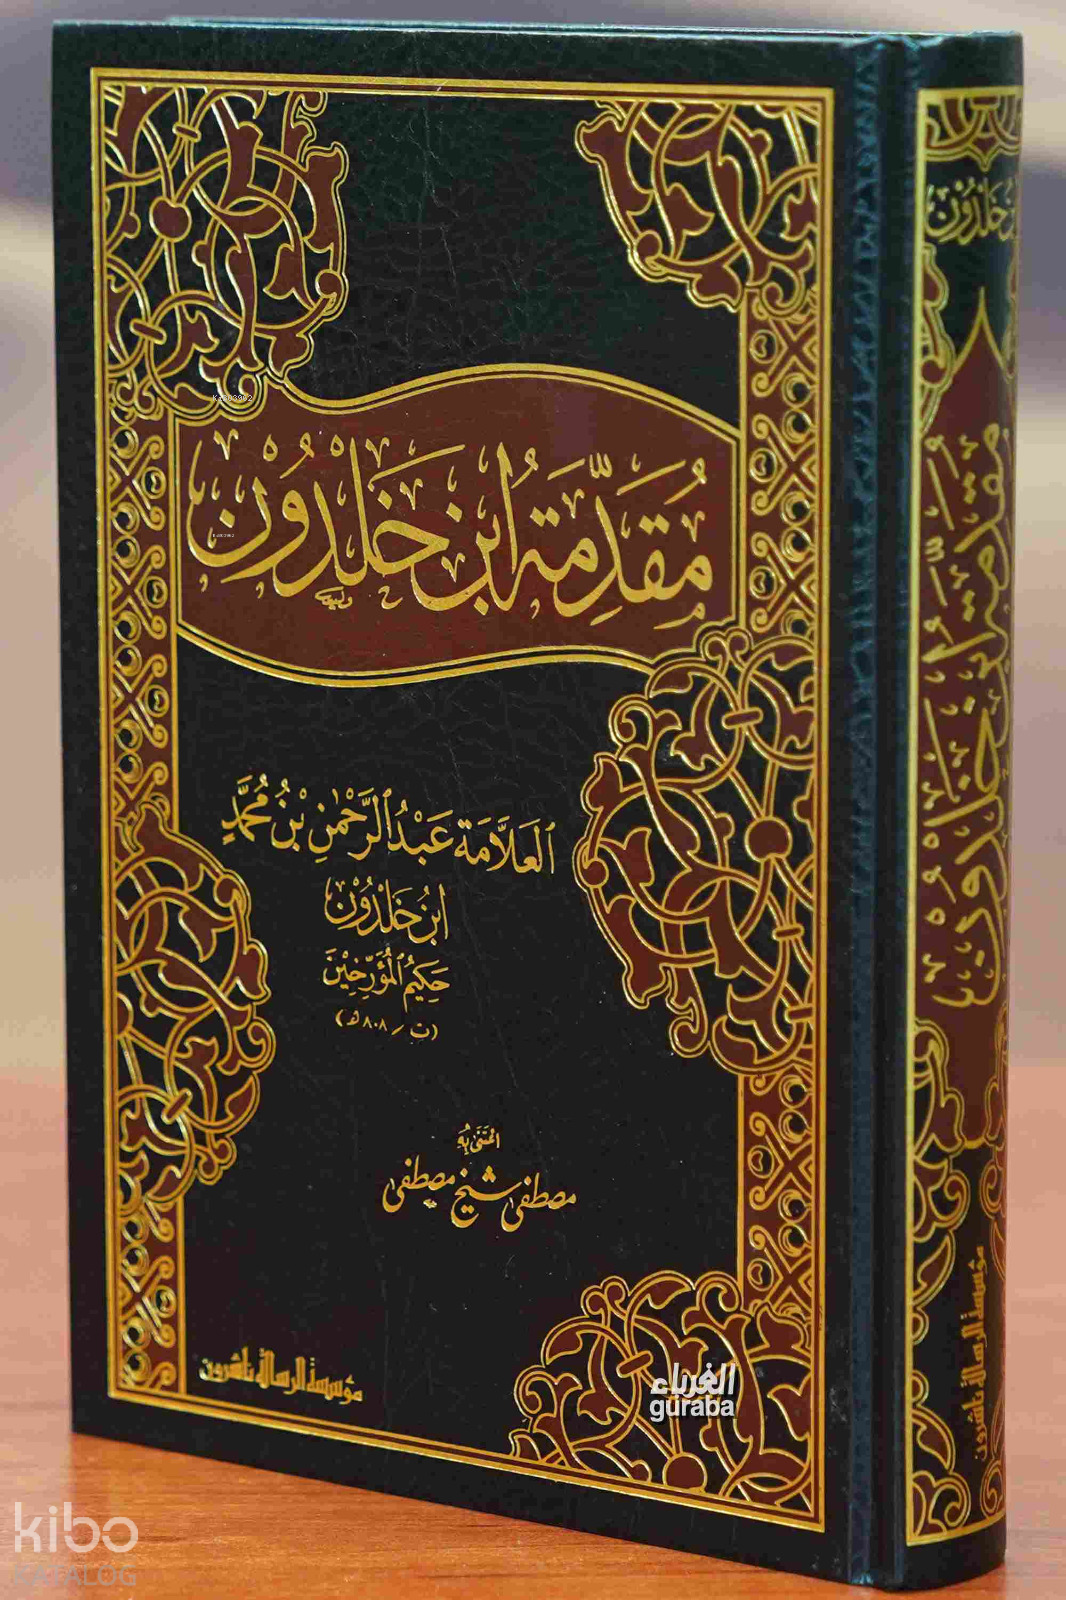 مُقَدِّمَةُ ابْنِ خَلْدُوْنْ
العَلَّامَة عَبْدُ الرَّحْمٰنِ بْنُ مُحَمَّدٍ
ابْنُ خَلْدُوْنْ
حَكِيمُ المُؤَرِّخِيْنَ
(ت / ٨٠٨ هـ)
اعْتَنَى بِهِ
مصطفى شيخ مصطفى
مؤسسة الرسالة ناشرون
ابْنُ خَلْدُوْنْ
مُقَدِّمَةُ ابْنِ خَلْدُوْنْ
مؤسسة الرسالة ناشرون
الغرباء
guraba
kibo
KATALOG